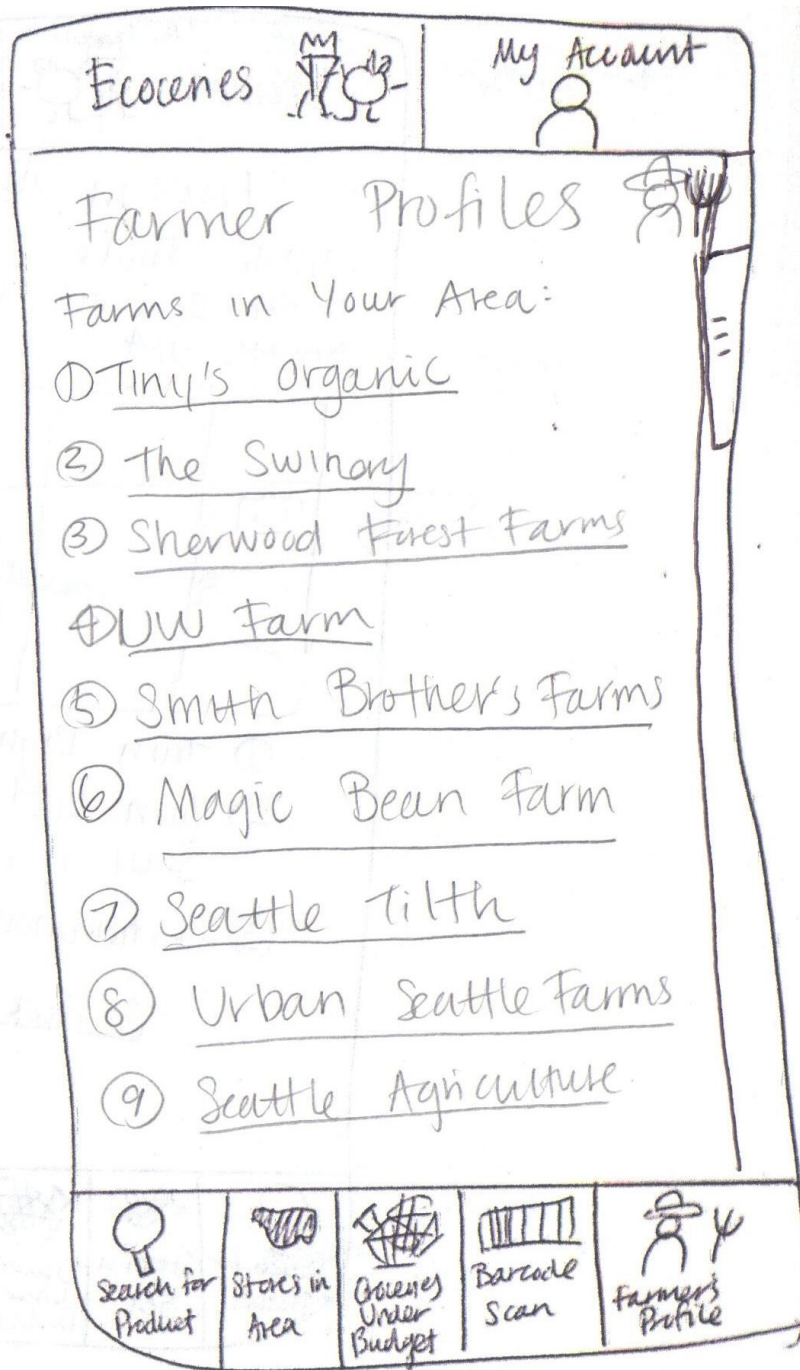 Ecoceries
My Account
Farmer Profiles
Farms in Your Area:
① Tiny's Organic
② The Swinery
③ Sherwood Forest Farms
④ UW Farm
⑤ Smith Brother's Farms
⑥ Magic Bean Farm
⑦ Seattle Tilth
⑧ Urban Seattle Farms
⑨ Seattle Agriculture
Search for
Product
Stores in
Area
Groceries
Under
Budget
Barcode
Scan
Farmer's
Profile